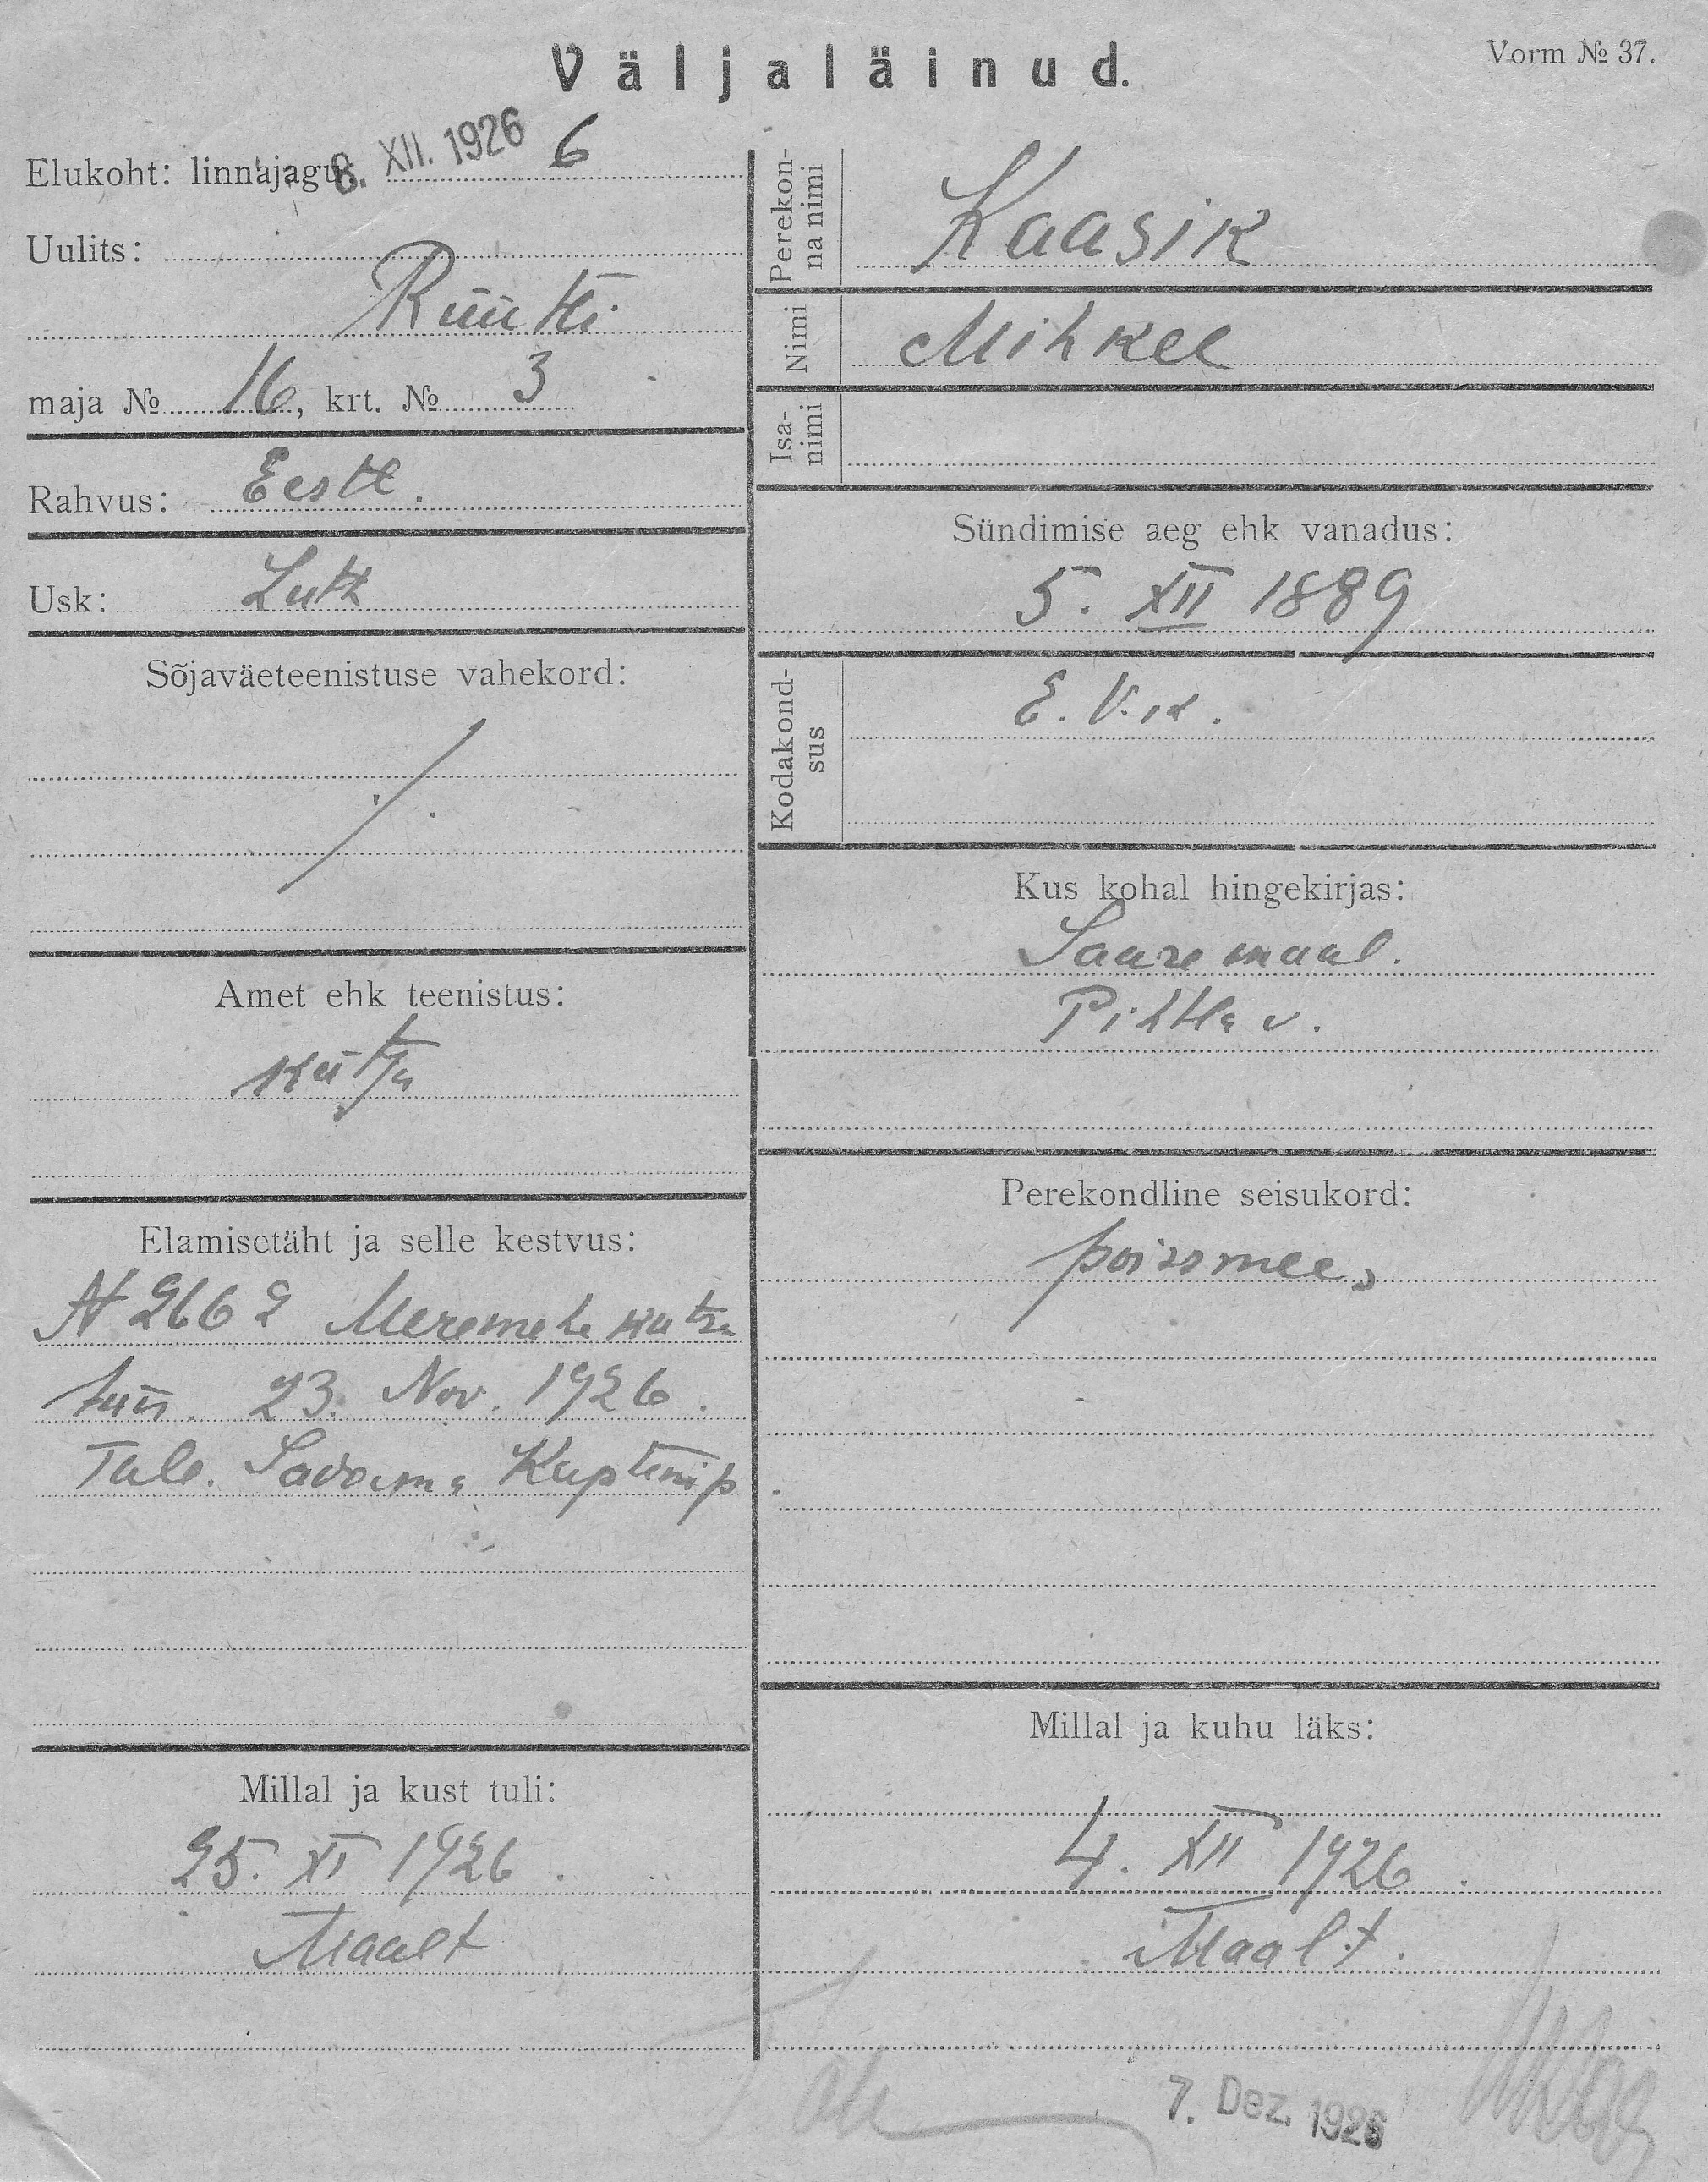 Väljaläinud.
Vorm № 37.
8. XII. 1926
Elukoht: linnajagu: 6
Uulits:
Rüütli
maja № 16, krt. № 3
Rahvus: Eestl.
Usk: Luth
Sõjaväeteenistuse vahekord:
Amet ehk teenistus:
Kütja
Elamisetäht ja selle kestvus:
N 2662 Meremehe
23. Nov. 1926.
Tall. Sadama Kapteni p
Millal ja kust tuli:
25. XI 1926.
Maalt
Perekonna nimi
Kaasik
Nimi
Mihkel
Isanimi
Sündimise aeg ehk vanadus:
5. XII 1889
Kodakondsus
E. V. k.
Kus kohal hingekirjas:
Saaremaal.
Pihtla v.
Perekondline seisukord:
poissmees
Millal ja kuhu läks:
4. XII 1926.
Maalt.
7. Dez. 1926